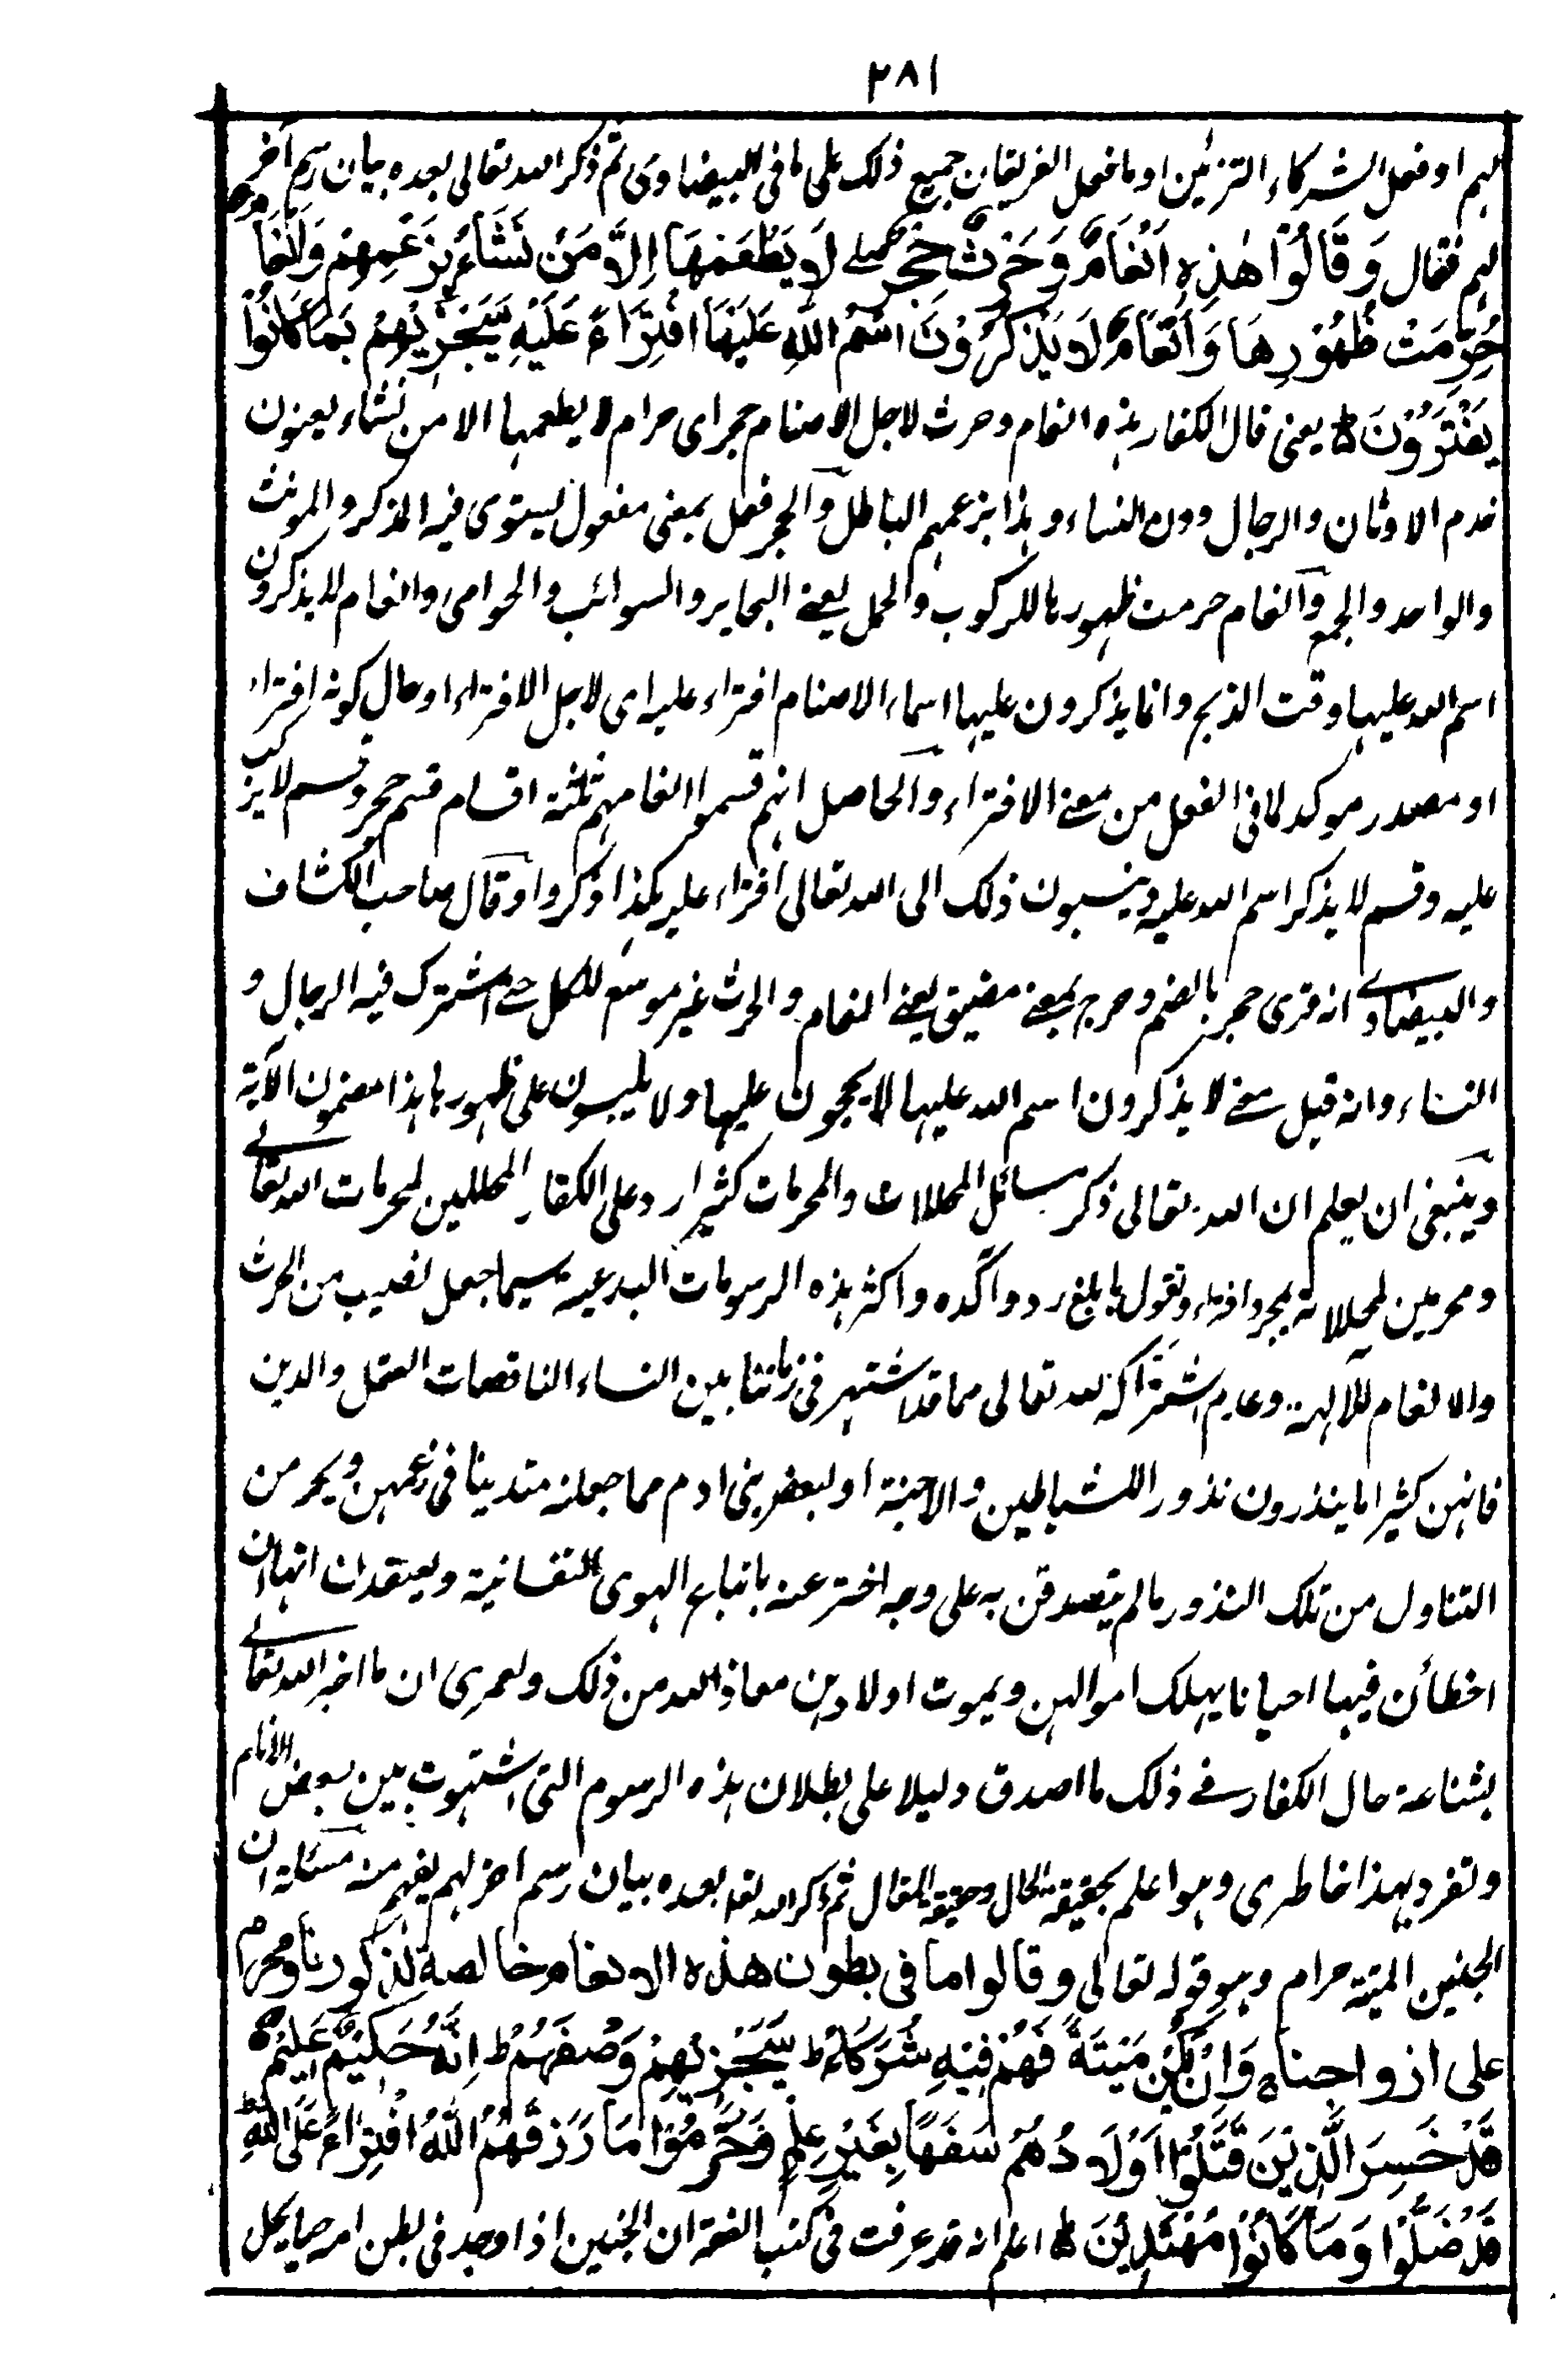 ٢٨١
لهم او فعل الشركاء التزئين او ما فعل الفريقان جميع ذلك على ما فى البيضاوى ثم ذكر الله تعالى بعده بيان رسم آخر
لهم فقال وَقَالُوْا هٰذِهٖ اَنْعَامٌ وَّحَرْثٌ حِجْرٌ لَا يَطْعَمُهَا اِلَّا مَنْ نَّشَاءُ بِزَعْمِهِمْ وَاَنْعَامٌ
حُرِّمَتْ ظُهُوْرُهَا وَاَنْعَامٌ لَا يَذْكُرُوْنَ اسْمَ اللّٰهِ عَلَيْهَا افْتِرَاءً عَلَيْهِ سَيَجْزِيْهِمْ بِمَا كَانُوْا
يَفْتَرُوْنَ ط يعنى قال الكفار هذه انعام وحرث لاجل الاصنام حجر اى حرام لا يطعمها الا من نشاء يعنون
خدم الاوثان والرجال دون النساء وهذا بزعمهم الباطل والحجر فعل بمعنى مفعول ليستوى فيه المذكر والمونث
والواحد والجمع وانعام حرمت ظهورها للركوب والحمل يعنے البحاير والسوائب والحوامى وانعام لا يذكرون
اسم الله عليها وقت الذبح وانما يذكرون عليها اسماء الاصنام افتراء عليه اى لاجل الافتراء او حال كونه افتراء
او مصدر موكد لما فى الفعل من معنے الافتراء والحاصل انهم قسموا انعامهم ثلثة اقسام قسم حجر وقسم لا يركب
عليه وقسم لا يذكر اسم الله عليه وينسبون ذلك الى الله تعالى افتراء عليه هكذا ذكروا وقال صاحب الكشاف
والبيضاوے انه قرى حجر بالضم وحرج بمعنے مضيق يعنے انعام والحرث غير موسع للكل حتے اشترك فيه الرجال و
النساء وانه قيل معنے لا يذكرون اسم الله عليها لا يحجون عليها ولا يلبسون على ظهورها هذا مضمون الآية
وينبغى ان يعلم ان الله تعالى ذكر مسائل المحللات والمحرمات كثيرا ردا على الكفار المحللين لمحرمات الله تعالے
ومحرمين لمحللاته بمجرد افتراء وتقول بابلغ رد واكده واكثر هذه الرسومات البدعية سيما جعل نصيب من الحرث
والانعام للآلهة وعدم اشتراكه لله تعالى مما قد اشتهر فى زماننا بين النساء الناقصات العقل والدين
فانهن كثيرا ما ينذرون نذورا للشياطين والاجنة او لبعض بنى ادم مما جعلنه متدينا فى زعمهن ويحرمن
التناول من تلك النذور ما لم يتصدقن به على وجه اخترعنه باتباع الهوى النفسانية ويعتقدن انها ان
اخطأن فيها احيانا يهلك اموالهن ويموت اولادهن معاذ الله من ذلك ولعمرى ان ما اخبر الله تعالے
بشناعة حال الكفار فے ذلك ما اصدق دليلا على بطلان هذه الرسوم التى اشتهرت بين بعض الانام
وتفرد بهذا خاطرى وهو اعلم بحقيقة الحال وحقيقة المقال ثم ذكر الله تعالى بعده بيان رسم اخر لهم يفهم منه مسئلة ان
الجنين الميتة حرام وهو قوله تعالى وقالوا ما فى بطون هذه الانعام خالصة لذكورنا ومحرم
على ازواجنا وَاِنْ يَّكُنْ مَّيْتَةً فَهُمْ فِيْهِ شُرَكَاءُ ط سَيَجْزِيْهِمْ وَصْفَهُمْ ط اِنَّهٗ حَكِيْمٌ عَلِيْمٌ
قَدْ خَسِرَ الَّذِيْنَ قَتَلُوْا اَوْلَادَهُمْ سَفَهًا بِغَيْرِ عِلْمٍ وَّحَرَّمُوْا مَا رَزَقَهُمُ اللّٰهُ افْتِرَاءً عَلَى اللّٰهِ ط
قَدْ ضَلُّوْا وَمَا كَانُوْا مُهْتَدِيْنَ ط اعلم انه قد عرفت فى كتب الفقه ان الجنين اذا وجد فى بطن امه حيا يحل